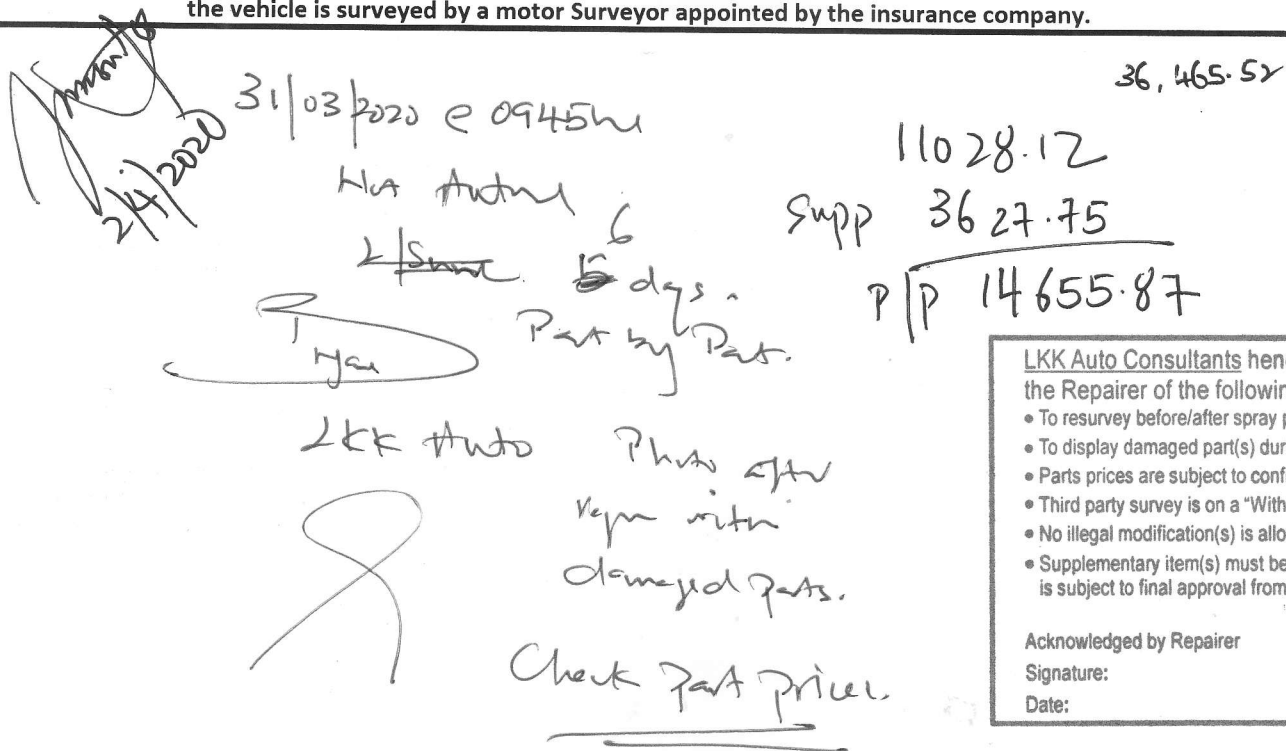 the vehicle is surveyed by a motor Surveyor appointed by the insurance company.
36,465.52
2/4/2020
31/03/2020 @ 0945hr
11028.12
Supp 3627.75
P/P 14655.87
Not
L/S
6
5 days.
Part by Part.
LKK Auto
Photo after
repair with
damaged parts.
Check Part Prices.
LKK Auto Consultants hen
the Repairer of the followin
• To resurvey before/after spray p
• To display damaged part(s) dur
• Parts prices are subject to conf
• Third party survey is on a "With
• No illegal modification(s) is allo
• Supplementary item(s) must be
is subject to final approval from
Acknowledged by Repairer
Signature:
Date: